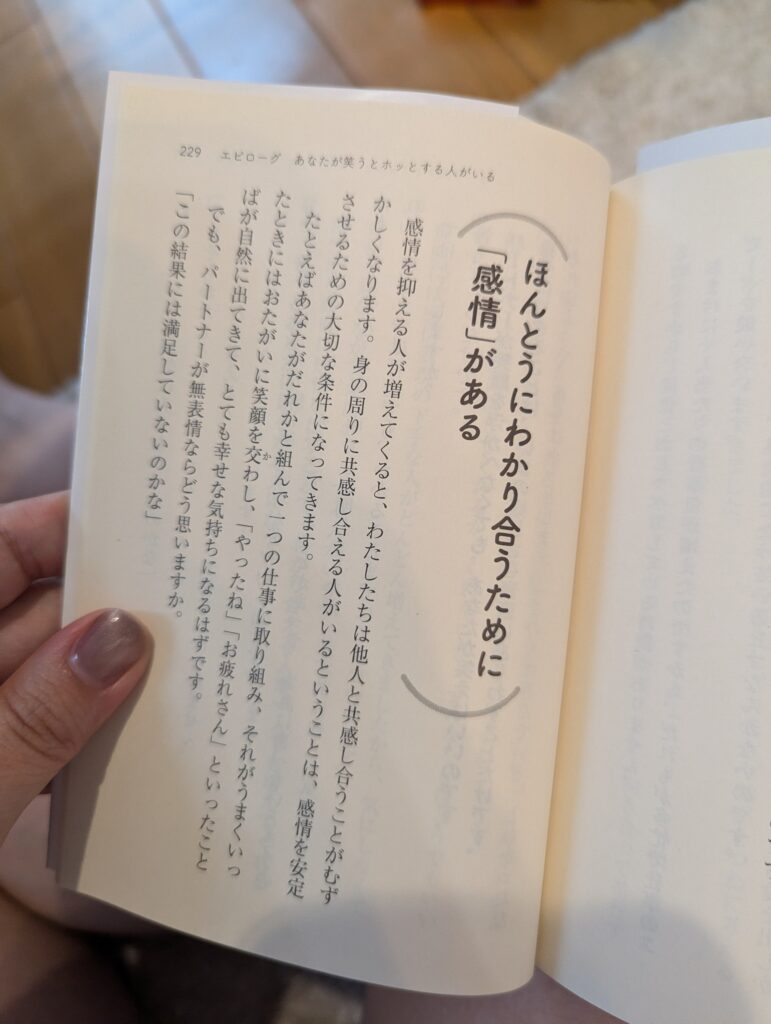 229 エピローグ あなたが笑うとホッとする人がいる
ほんとうにわかり合うために
「感情」がある
感情を抑える人が増えてくると、わたしたちは他人と共感し合うことがむず
かしくなります。身の周りに共感し合える人がいるということは、感情を安定
させるための大切な条件になってきます。
たとえばあなたがだれかと組んで一つの仕事に取り組み、それがうまくいっ
たときにはおたがいに笑顔を交わし、「やったね」「お疲れさん」といったこと
か
ばが自然に出てきて、とても幸せな気持ちになるはずです。
でも、パートナーが無表情ならどう思いますか。
「この結果には満足していないのかな」